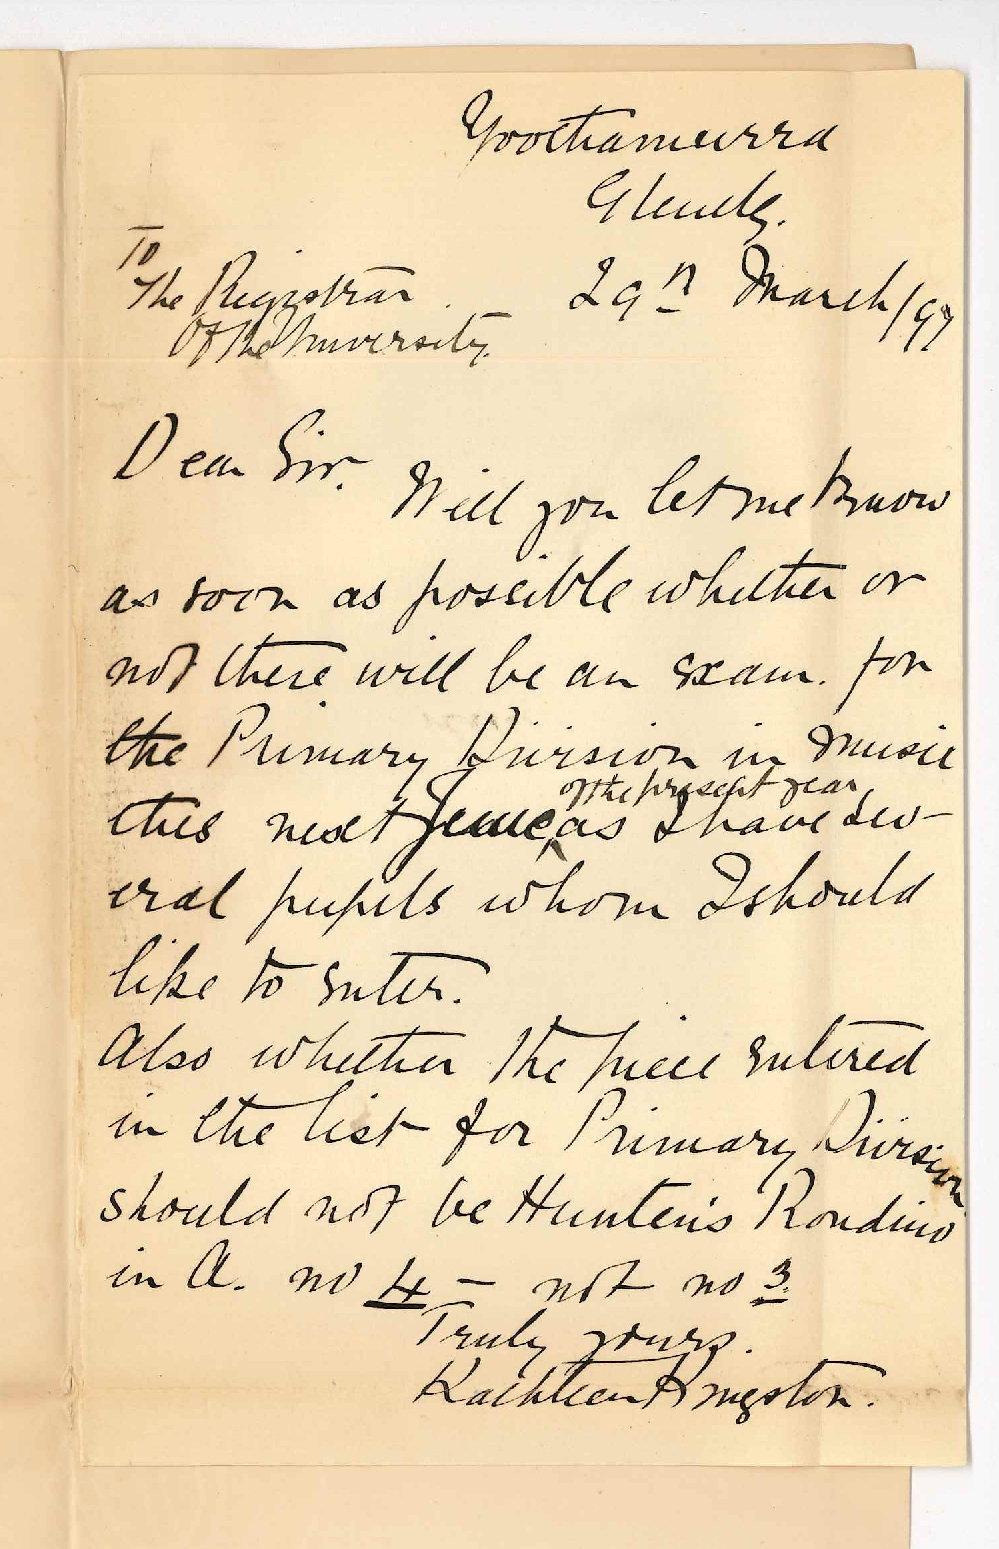 Yoothamurra
Glenelg.
To
The Registrar
Of the University.
29th March/97
Dear Sir.
Will you let me know
as soon as possible whether or
not there will be an exam. for
the Primary Division in Music
of the present year
this next June as I have sev-
eral pupils whom I should
like to enter.
Also whether the piece entered
in the list for Primary Division
should not be Hunten's Rondino
in A. no 4 - not no 3.
Truly yours.
Kathleen Kingston.